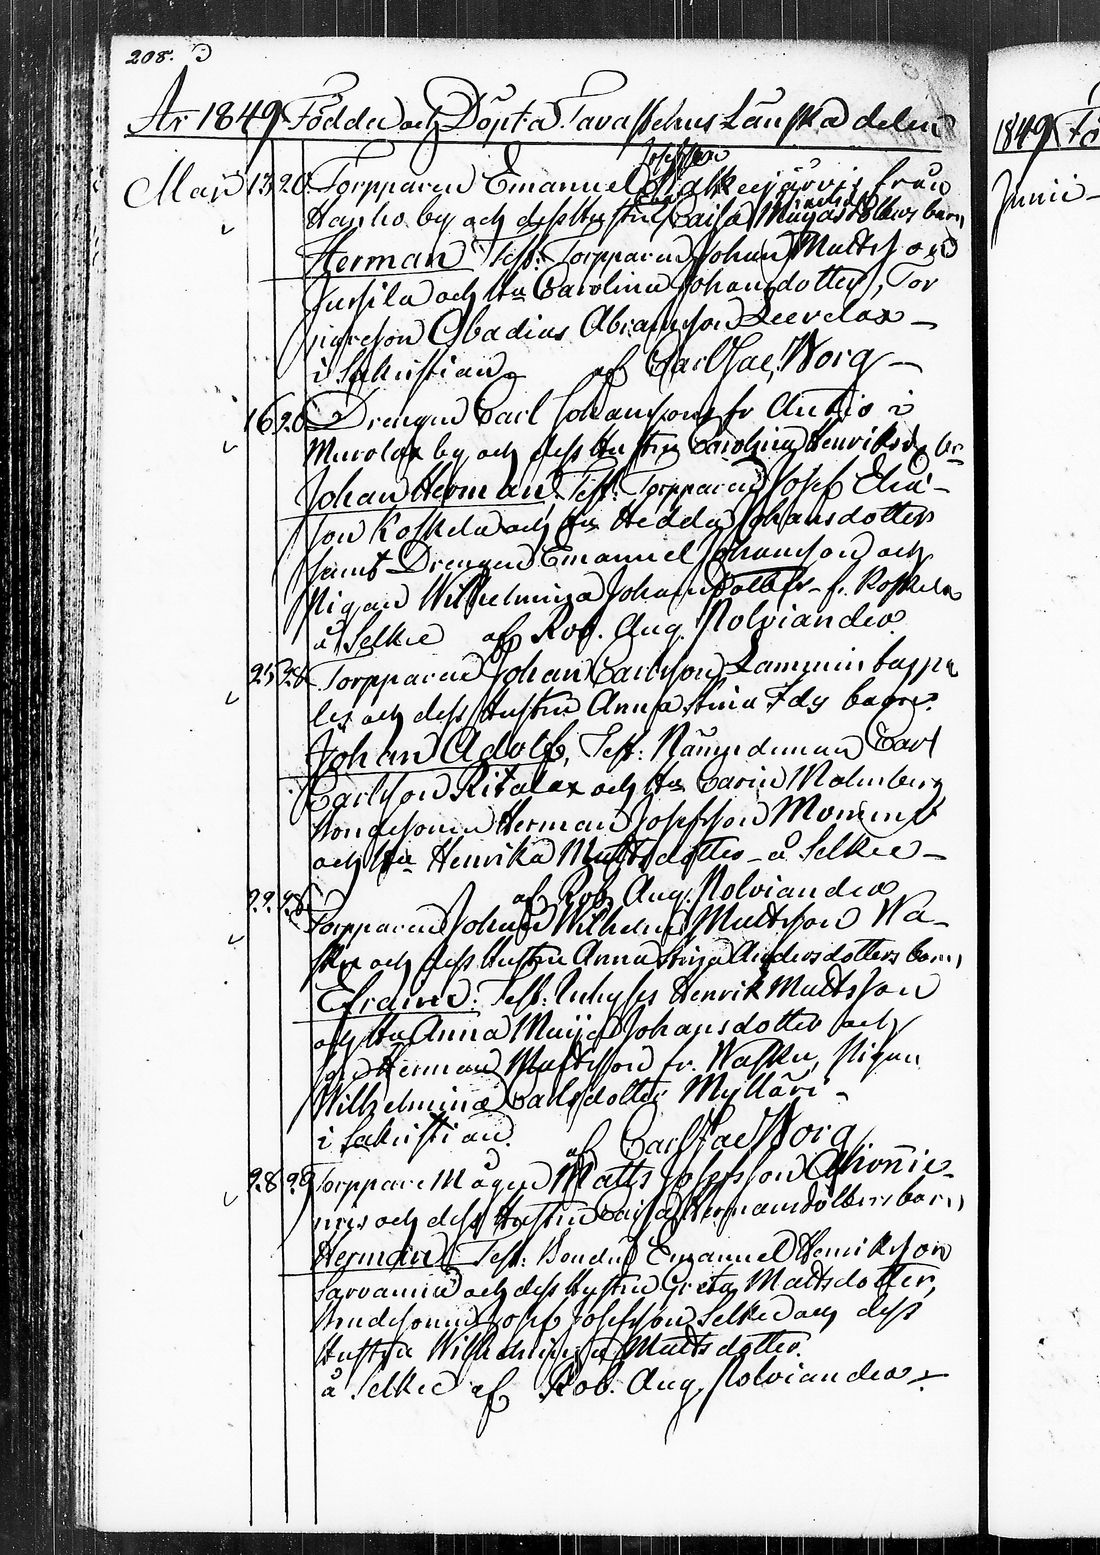 208.
År 1849 Födde och Döpta Tavastehus Länska delen
Maij 13 20 Torpparen Emanuel Josefsson från
Hanho by och dess Hustru Caisa barn
Herman Test: Torpparen Johan Mattsson
Jussila och Hu Carolina Johansdotter, Tor
pareson Abadias Abramsson Leevelax
i Sakristian af Carl Jac. Norg
16 20 Drengen Carl Johansson fr Anttio i
Murolax by och dess Hustru Carolina Henriksdr bn
Johan Herman Test: Torpparen Josef Elia-
son Koskela och Hu Hedda Johansdotter
samt Drengen Emanuel Johansson och
Pigan Wilhelmina Johansdotter fr. Koskela
å Selkee af Rob. Aug. Polviander
25 28 Torpparen Johan Carlsson Lamminkappa
les och dess Hustru Anna Stina Fdr barn
Johan Adolf, Test: Nämndeman Carl
Carlsson Ritalax och Hu Carin Malmberg
Bondesonen Herman Josefsson Mommo
och Hu Henrika Mattsdotter å Selkee
af Rob. Aug. Polviander
22 28 Torpparen Johan Wilhelm Mattsson Wa-
sku och dess Hustru Anna Stina Andersdotters barn
Efraim. Test: Inhyses Henrik Mattsson
och Hu Anna Maija Johansdotter och
Herman Mattsson fr. Wasku, Pigan
Wilhelmina Carlsdotter Mylläri
i Sakristian. af Carl Jac Norg
28 29 Torppare Mågen Matts Josefsson
och dess Hustru Caisa Hermansdotters barn
Herman Test: Bonden Emanuel Henriksson
Sarvamia och dess Hustru Greta Mattsdotter,
Bondesonen Josef Josefsson Selkee och dess
Hustru Wilhelmina Mattsdotter.
å Selkee af Rob. Aug. Polviander
1849 Fö
Junii